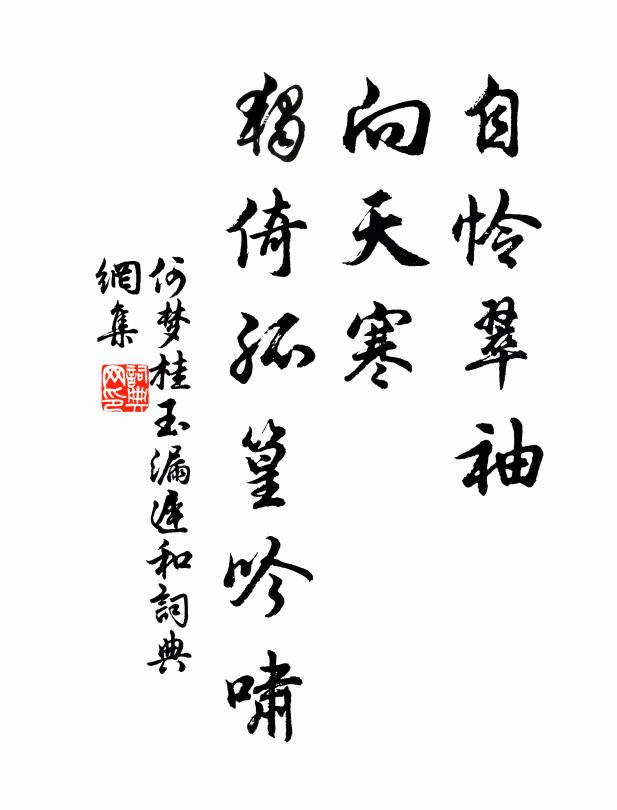 自怜翠袖
向天寒
独倚孤篁吟啸
何梦桂玉漏遲和詞典
網集
詞典
网印